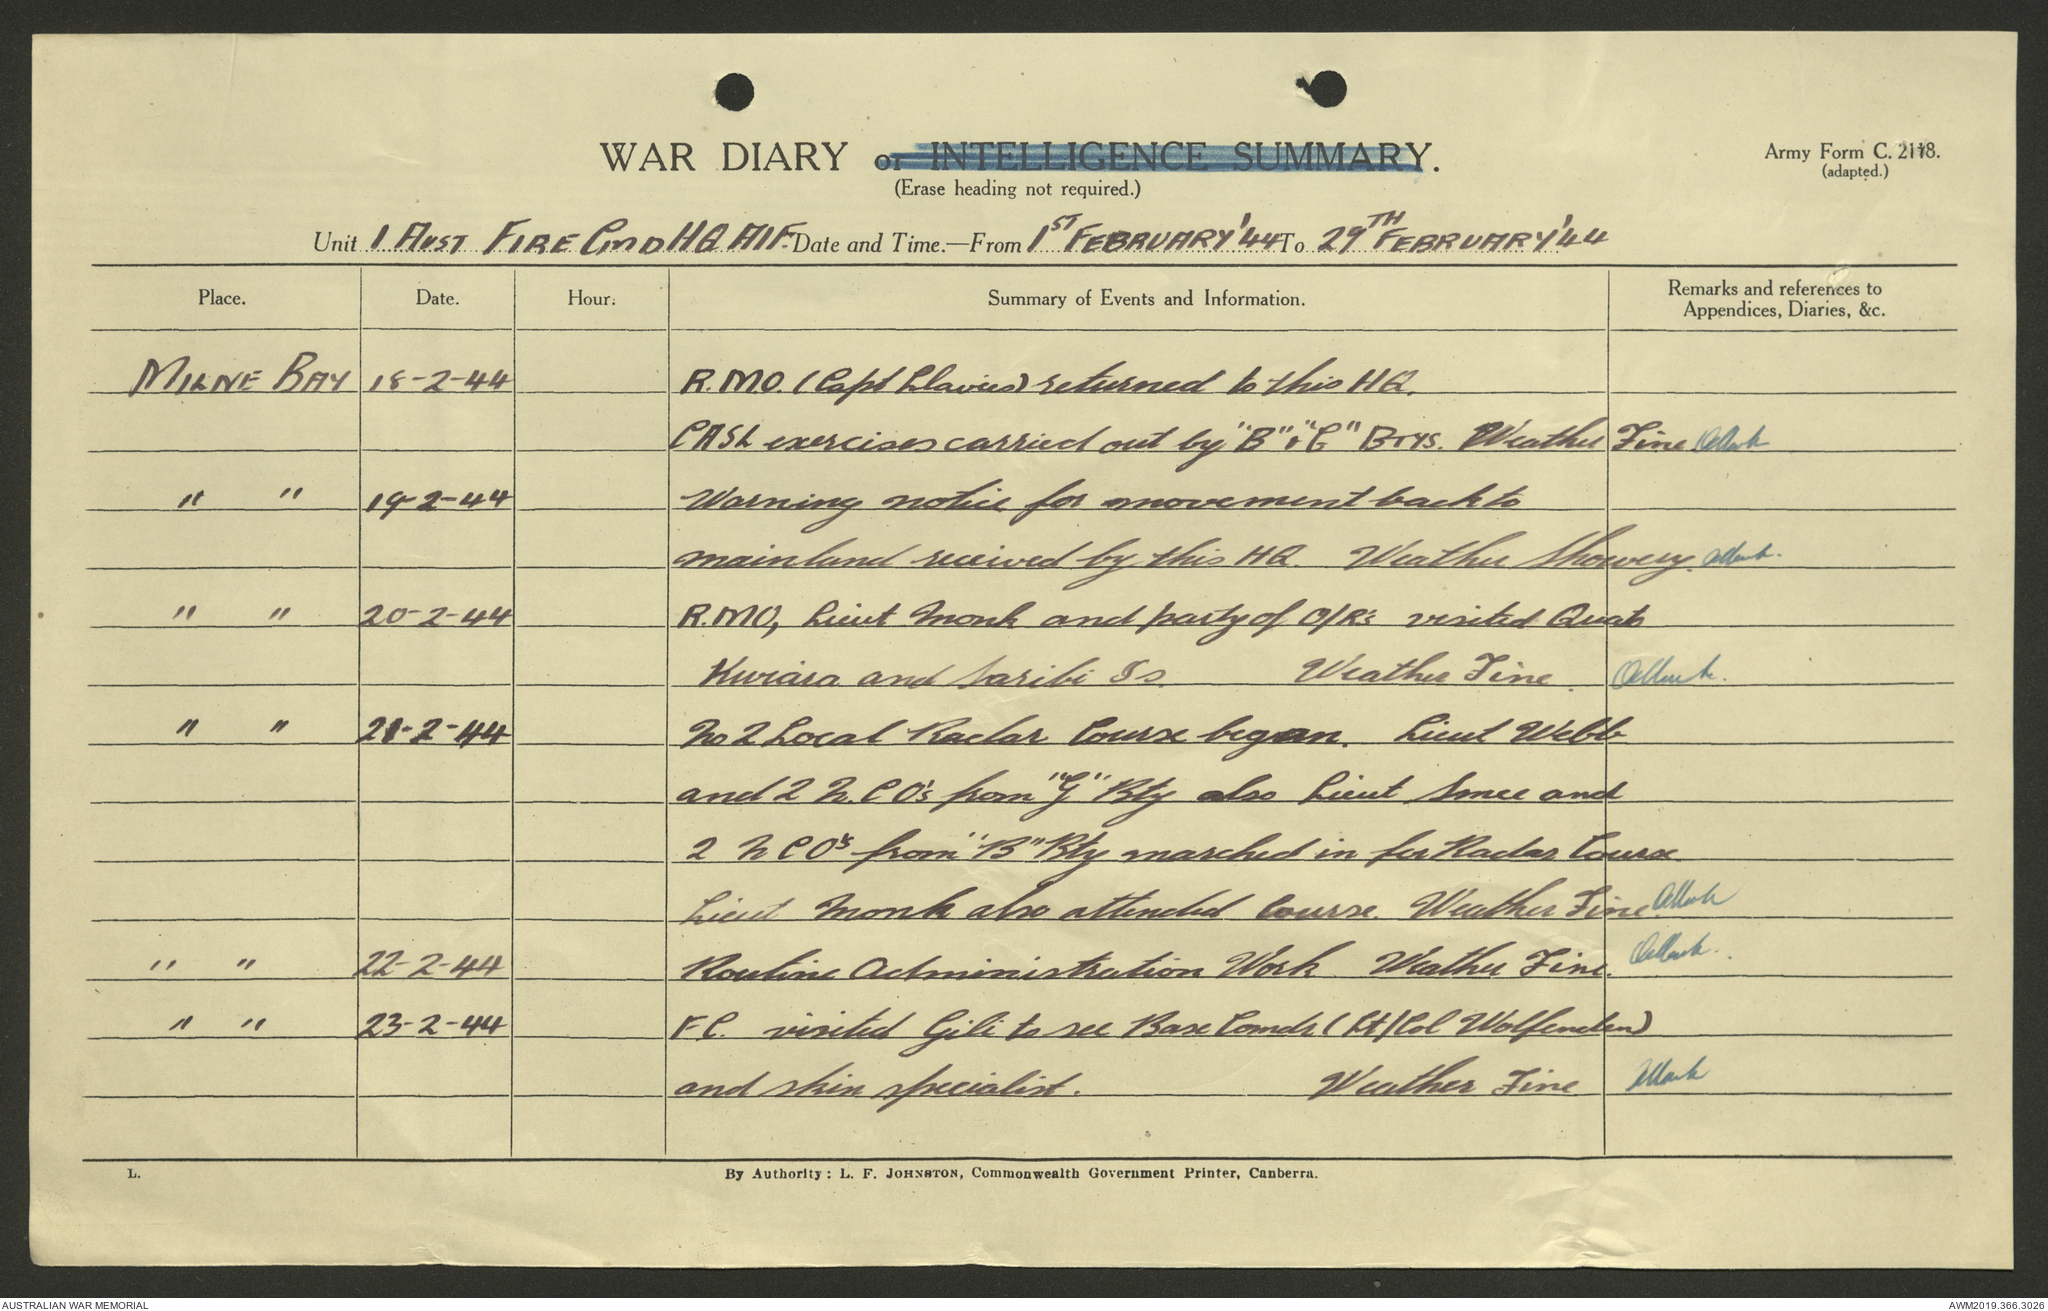 WAR DIARY or INTELLIGENCE SUMMARY.
(Erase heading not required.)
Army Form C. 2118.
(adapted.)
Unit 1 AUST FIRE CMD HQ AIF. Date and Time.—From 1ST FEBRUARY '44 To 29TH FEBRUARY '44
Place. Date. Hour. Summary of Events and Information. Remarks and references to
Appendices, Diaries, &c.
MILNE BAY 18-2-44 R.M.O. (Capt Davies) returned to this HQ.
CASL exercises carried out by "B" & "G" Btys. Weather Fine
" " 19-2-44 Warning notice for movement back to
mainland received by this HQ. Weather Showery.
" " 20-2-44 R.M.O, Lieut Monk and party of O/R's visited Quato
Kwiara and Saribi Is. Weather Fine.
" " 21-2-44 No 2 Local Radar Course began. Lieut Webb
and 2 N.C.O's from "G" Bty also Lieut Smee and
2 N C O's from "B" Bty marched in for Radar Course
Lieut Monk also attended Course. Weather Fine
" " 22-2-44 Routine Administration Work Weather Fine.
" " 23-2-44 F.C. visited Gili to see Base Comdr (Lt/Col Wolfenden)
and skin specialist. Weather Fine
L. By Authority: L. F. JOHNSTON, Commonwealth Government Printer, Canberra.
AUSTRALIAN WAR MEMORIAL AWM2019.366.3026